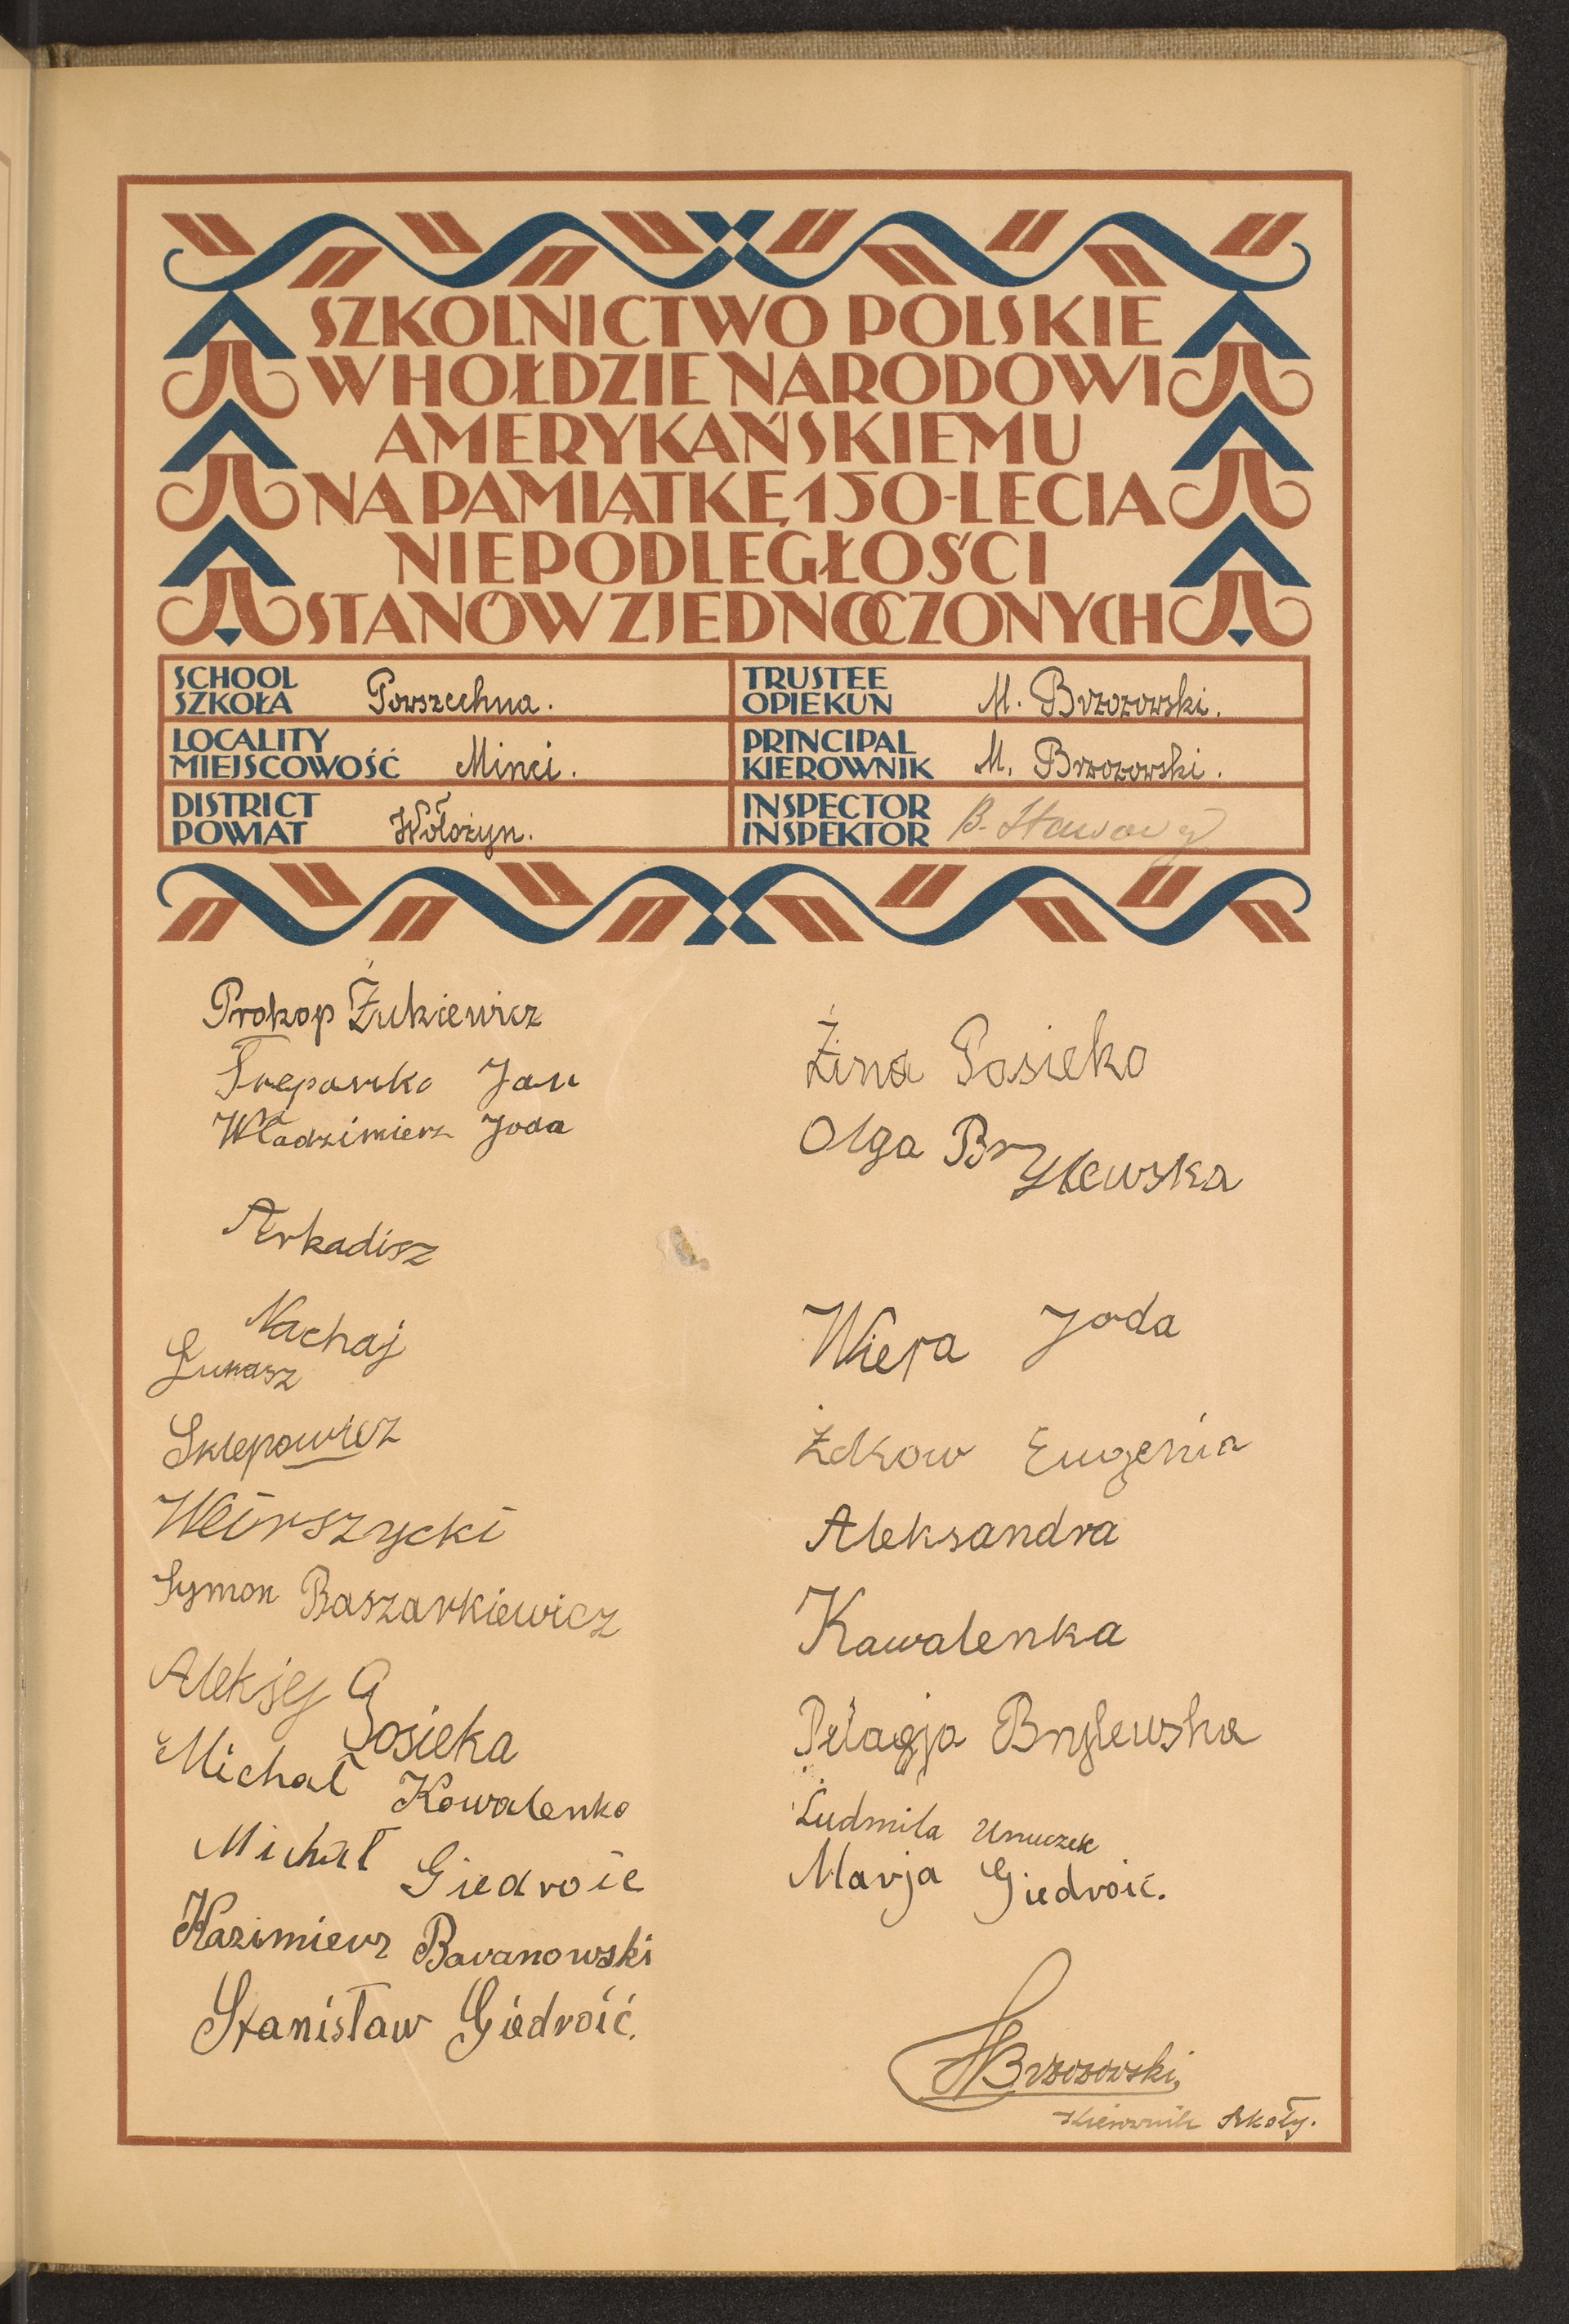 SZKOLNICTWO POLSKIE
W HOŁDZIE NARODOWI
AMERYKAŃSKIEMU
NA PAMIĄTKĘ 150-LECIA
NIEPODLEGŁOŚCI
STANÓW ZJEDNOCZONYCH
SCHOOL
SZKOŁA Powszechna.
TRUSTEE
OPIEKUN M. Brzozowski.
LOCALITY
MIEJSCOWOŚĆ Minci.
PRINCIPAL
KIEROWNIK M. Brzozowski.
DISTRICT
POWIAT Wołożyn.
INSPECTOR
INSPEKTOR B.
Prokop Żukiewicz
Jan
Władzimierz Joda
Arkadisz
Nachaj
Łukasz
Sklepowicz
Symon Baszarkiewicz
Aleksjej
Posieka
Michał Kowalenko
Michał Giedroic
Kazimierz Baranowski
Stanisław Giedroić.
Żina Posieko
Olga Brylewska
Wiera Joda
Eugenia
Aleksandra
Kawalenka
Pelagja Brylewska
Ludmila Unuczek
Marja Giedroić.
MBrzozowski,
Kierownik Szkoły.